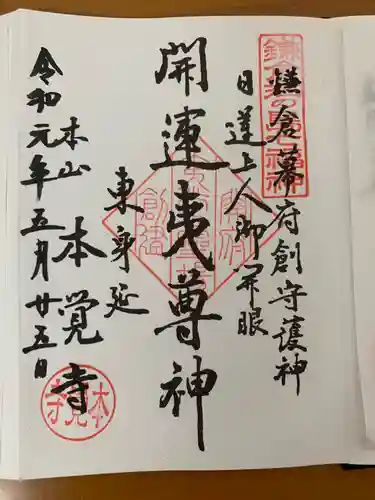 鎌倉幕府創守護神
日蓮上人御開眼
開運夷尊神
東身延
本山 本覚寺
令和元年五月廿五日
本覚寺